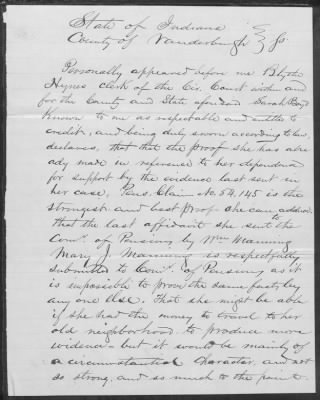 State of Indiana
County of Vanderburgh } ss
Personally appeared before me Blythe
Hynes clerk of the Cir. Court within and
for the County and State aforesaid Sarah Boyd
Known to me as respectable and entitled to
credit, and being duly sworn according to law,
declares, that that the proof she has alre
ady made in reference to her dependence
for support by the evidence last sent in
her case, Pens. Claim No 54,145 is the
strongest and best proof she can adduce.
that the last affidavit she sent to the
Com. of Pensions by Wm Manning
Mary J. Manning is respectfully
submitted to Com. of Pensions as it
is impossible to prove the same facts by
any one else. That she might be able
if she had the money to travel to her
old neighborhood to produce more
evidence - but it would be mainly of
a circumstantial character, and not
so strong, and so much to the point.